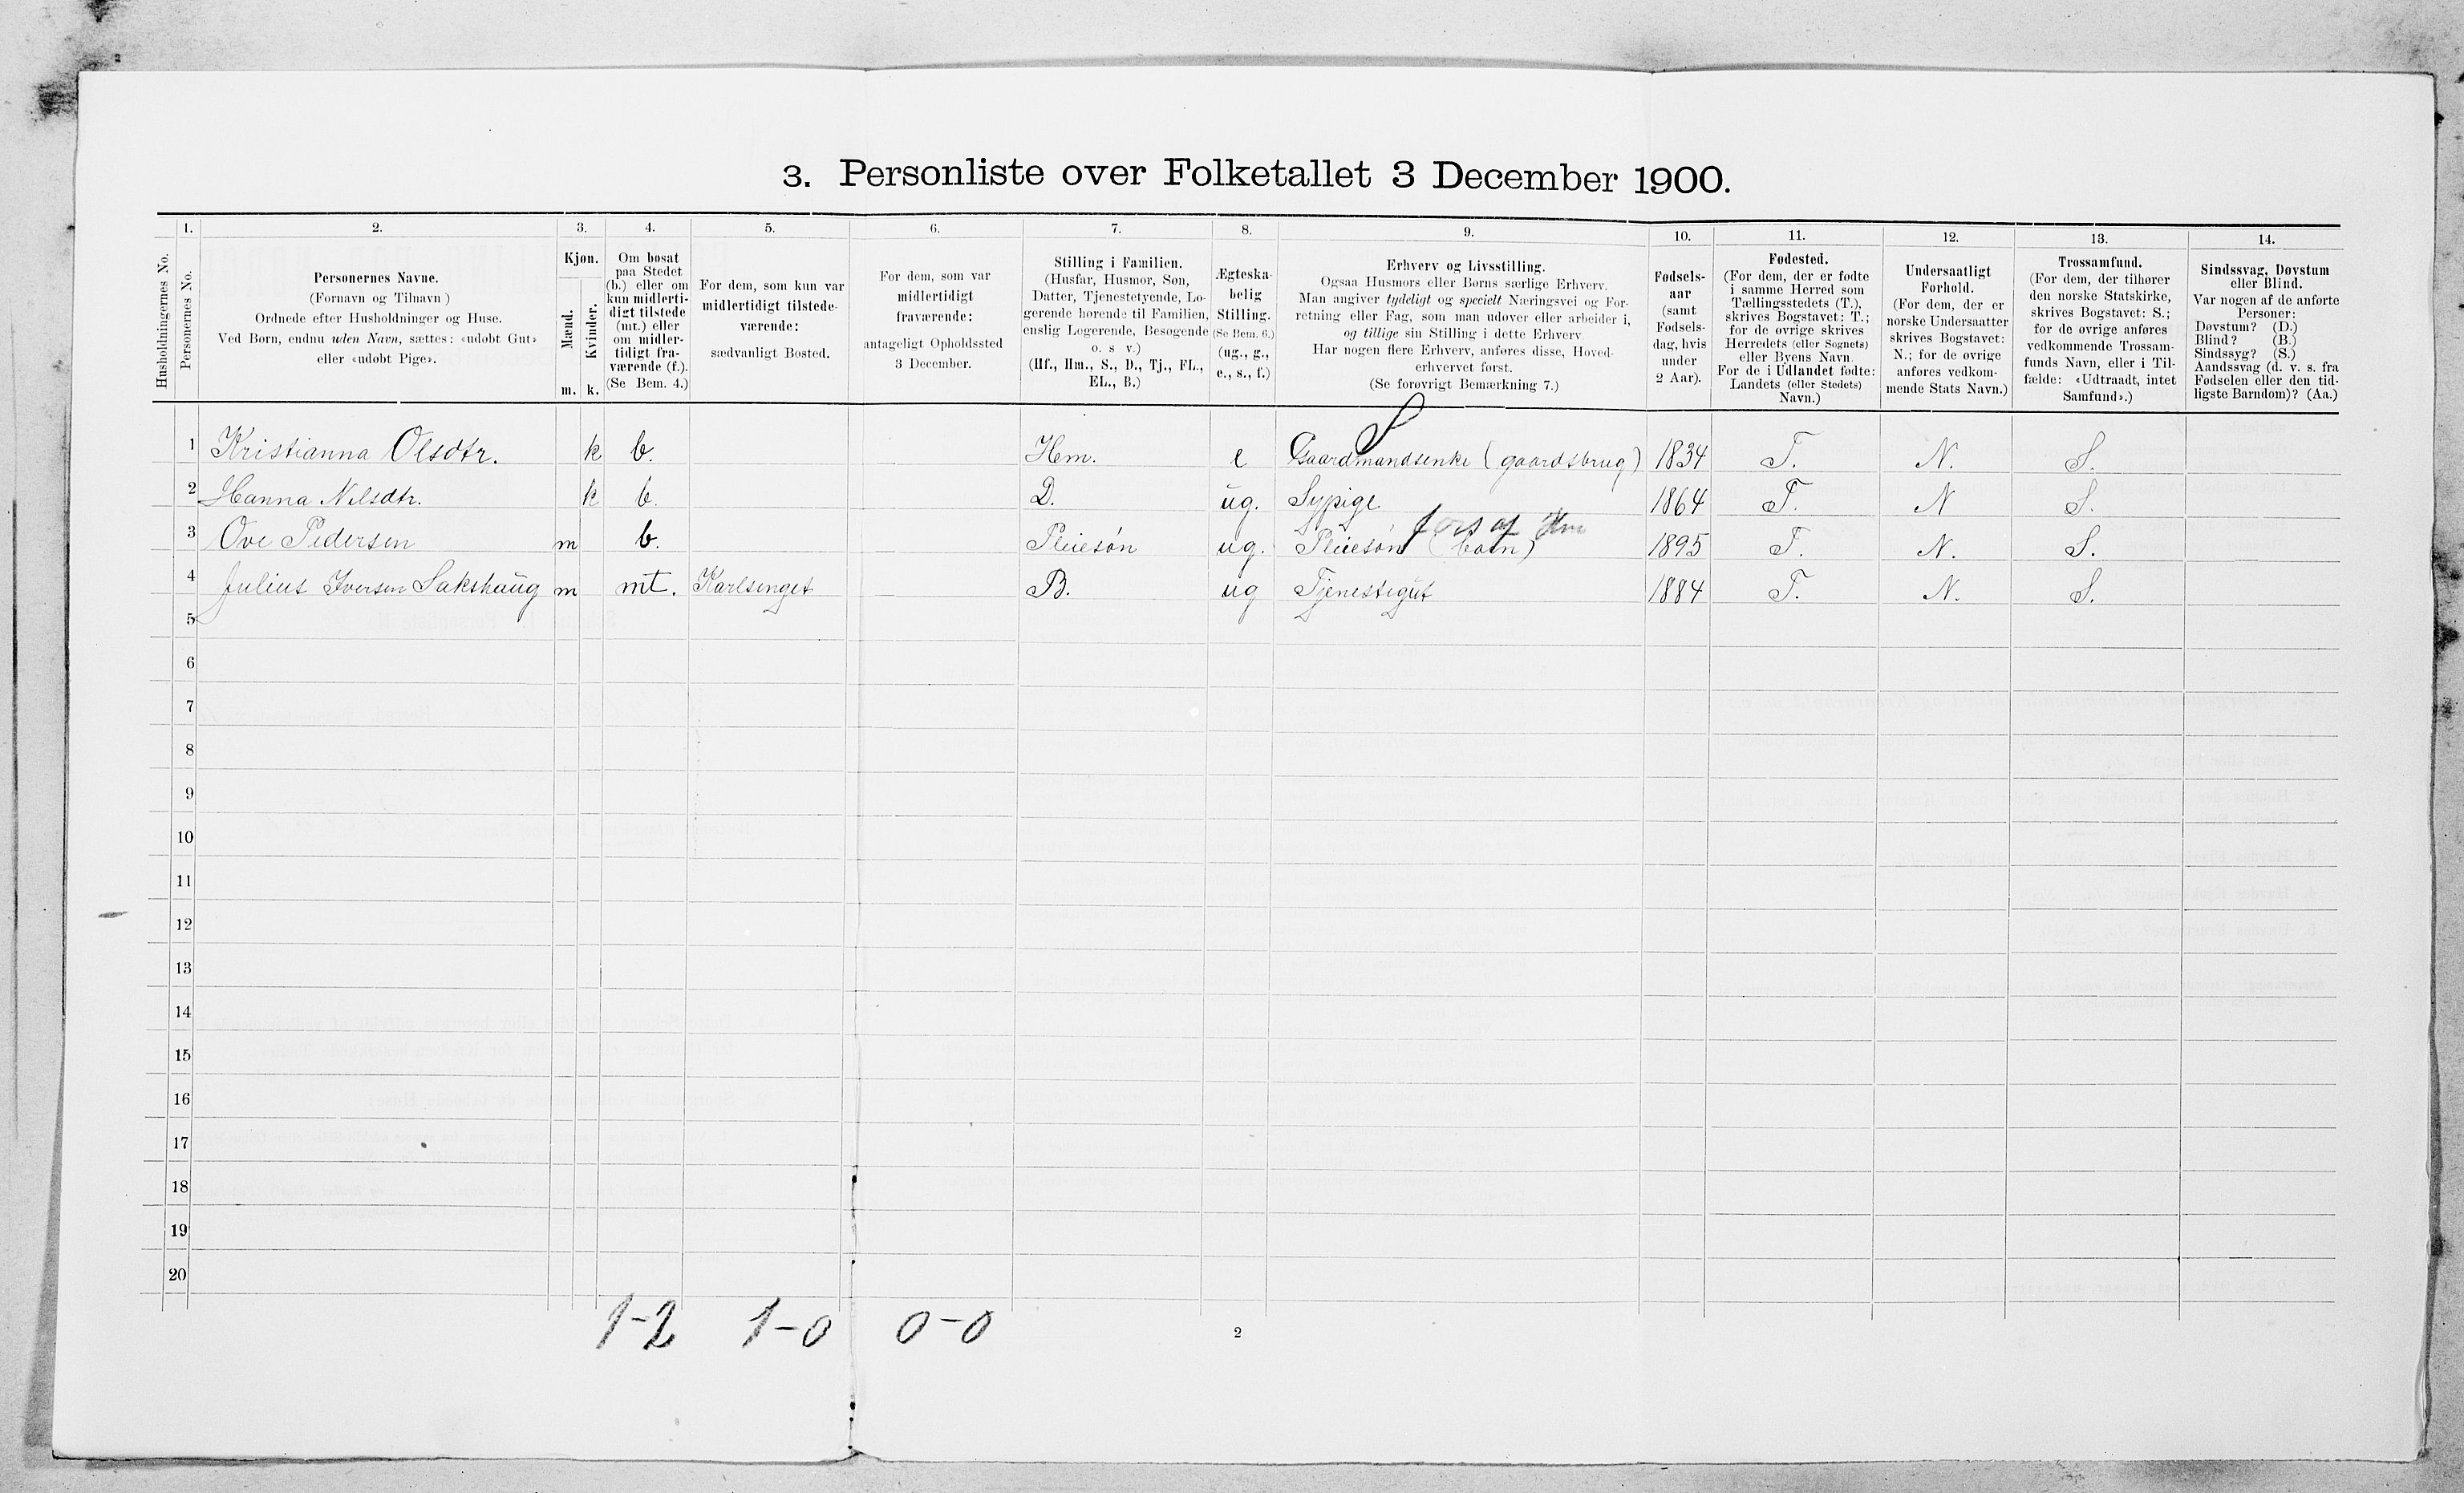 3. Personliste over Folketallet 3 December 1900.
1. 2. 3. 4. 5. 6. 7. 8. 9. 10. 11. 12. 13. 14.
Husholdningernes No.
Personernes No.
Personernes Navne.
(Fornavn og Tilnavn)
Ordnede efter Husholdninger og Huse.
Ved Børn, endnu uden Navn, sættes: «udøbt Gut»
eller «udøbt Pige».
Kjøn.
Mænd.
Kvinder.
m. k.
Om bosat
paa Stedet
(b.) eller om
kun midlerti-
digt tilstede
(mt.) eller
om midler-
tidigt fra-
værende (f.).
(Se Bem. 4.)
For dem, som kun var
midlertidigt tilstede-
værende:
sædvanligt Bosted.
For dem, som var
midlertidigt
fraværende:
antageligt Opholdssted
3 December.
Stilling i Familien.
(Husfar, Husmor, Søn,
Datter, Tjenestetyende, Lo-
gerende hørende til Familien,
enslig Logerende, Besøgende
o. s. v.)
(Hf., Hm., S., D., Tj., FL.,
EL., B.)
Ægteska-
belig
Stilling.
(Se Bem. 6.)
(ug., g.,
e., s., f.)
Erhverv og Livsstilling.
Ogsaa Husmors eller Børns særlige Erhverv.
Man angiver tydeligt og specielt Næringsvei og For-
retning eller Fag, som man udøver eller arbeider i,
og tillige sin Stilling i dette Erhverv.
Har nogen flere Erhverv, anføres disse, Hoved-
erhvervet først.
(Se forøvrigt Bemærkning 7.)
Fødsels-
aar
(samt
Fødsels-
dag, hvis
under
2 Aar).
Fødested.
(For dem, der er fødte
i samme Herred som
Tællingsstedets (T.),
skrives Bogstavet: T.;
for de øvrige skrives
Herredets (eller Sognets)
eller Byens Navn.
For de i Udlandet fødte:
Landets (eller Stedets)
Navn.)
Undersaatligt
Forhold.
(For dem, der er
norske Undersaatter
skrives Bogstavet:
N.; for de øvrige
anføres vedkom-
mende Stats Navn.)
Trossamfund.
(For dem, der tilhører
den norske Statskirke,
skrives Bogstavet: S.;
for de øvrige anføres
vedkommende Trossam-
funds Navn, eller i Til-
fælde: «Udtraadt, intet
Samfund».)
Sindssvag, Døvstum
eller Blind.
Var nogen af de anførte
Personer:
Døvstum? (D.)
Blind? (B.)
Sindssyg? (S.)
Aandssvag (d. v. s. fra
Fødselen eller den tid-
ligste Barndom)? (Aa.)
S
1 Kristianna Olsdtr. k b. Hem. e Gaardmandsenke (gaardsbrug) 1834 T. N. S.
2 Hanna Nilsdtr. k b. D. ug. Sypige 1864 T. N S.
fors af Hm
3 Ove Pedersen m b. Pleiesøn ug. Pleiesøn (barn) 1895 T. N. S.
4 Julius Iversen Sakshaug m mt. Karlsenget B. ug Tjenestegut 1884 T. N. S.
5
6
7
8
9
10
11
12
13
14
15
16
17
18
19
20
1-2 1-0 0-0
2